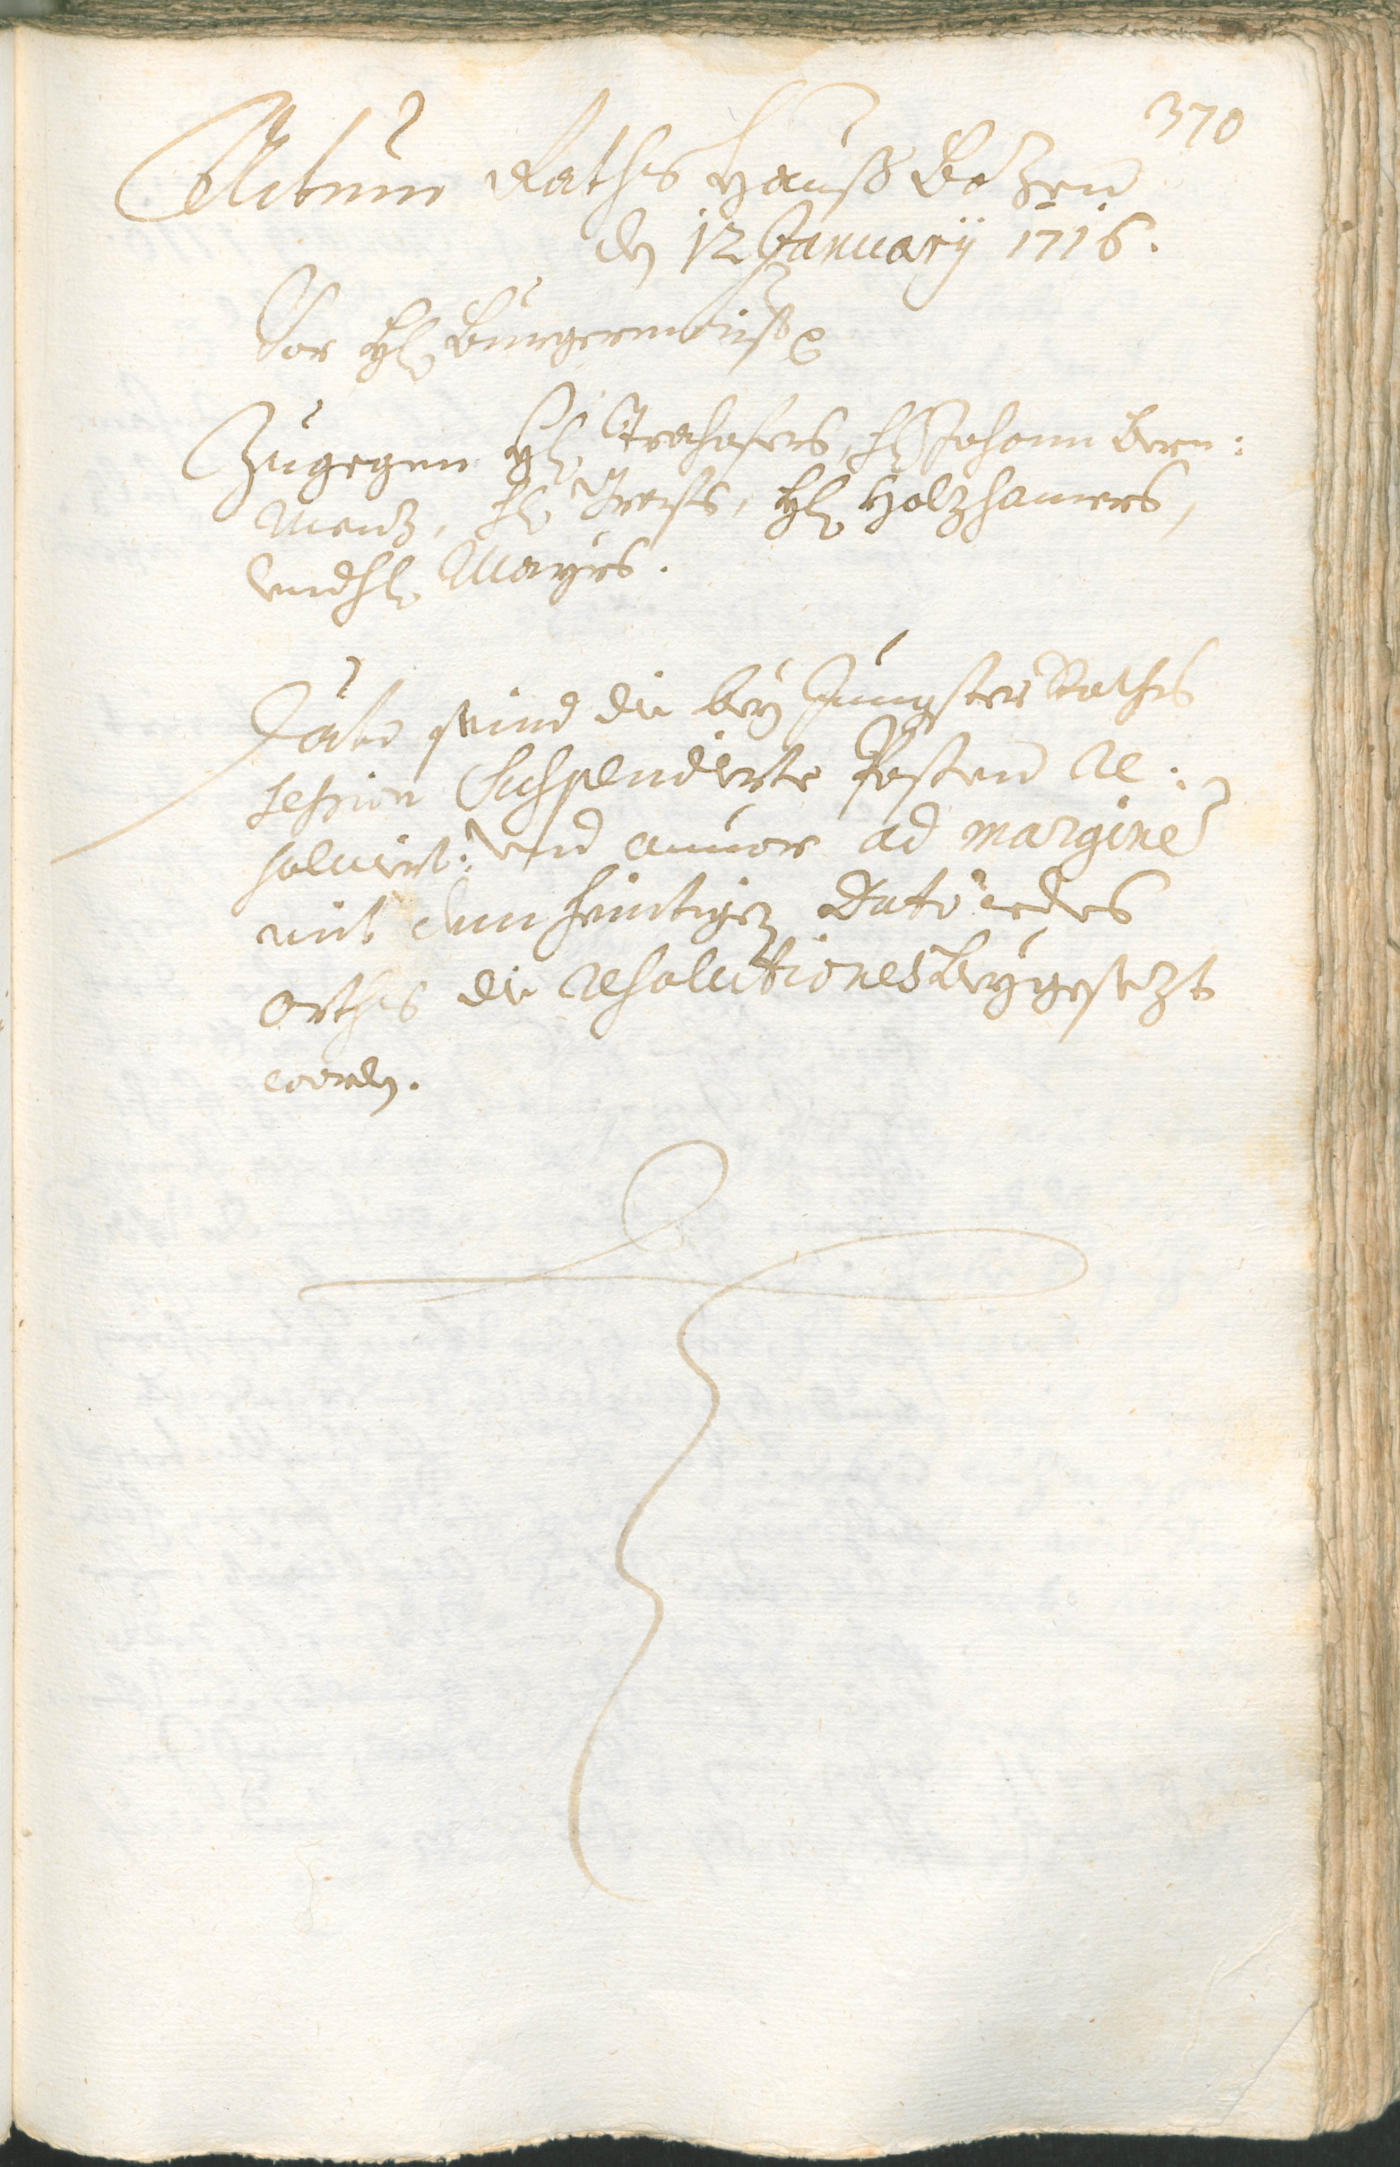 370
Actum Raths Hauß Bozen
den 12 January 1716.
Vor Hl Burgermaister
Zugegen Hl Trehofers, Hl Johann Bern:
Menz, Hl Hl Holzhamers,
und Hl Mayrs.
Dato seind die bey Jungster Raths
session suspendierte Posten re:
solviert: und anvor ad margine
mit dem heintigen Dato iedes
orths die resolutiones beygesezt
worden.